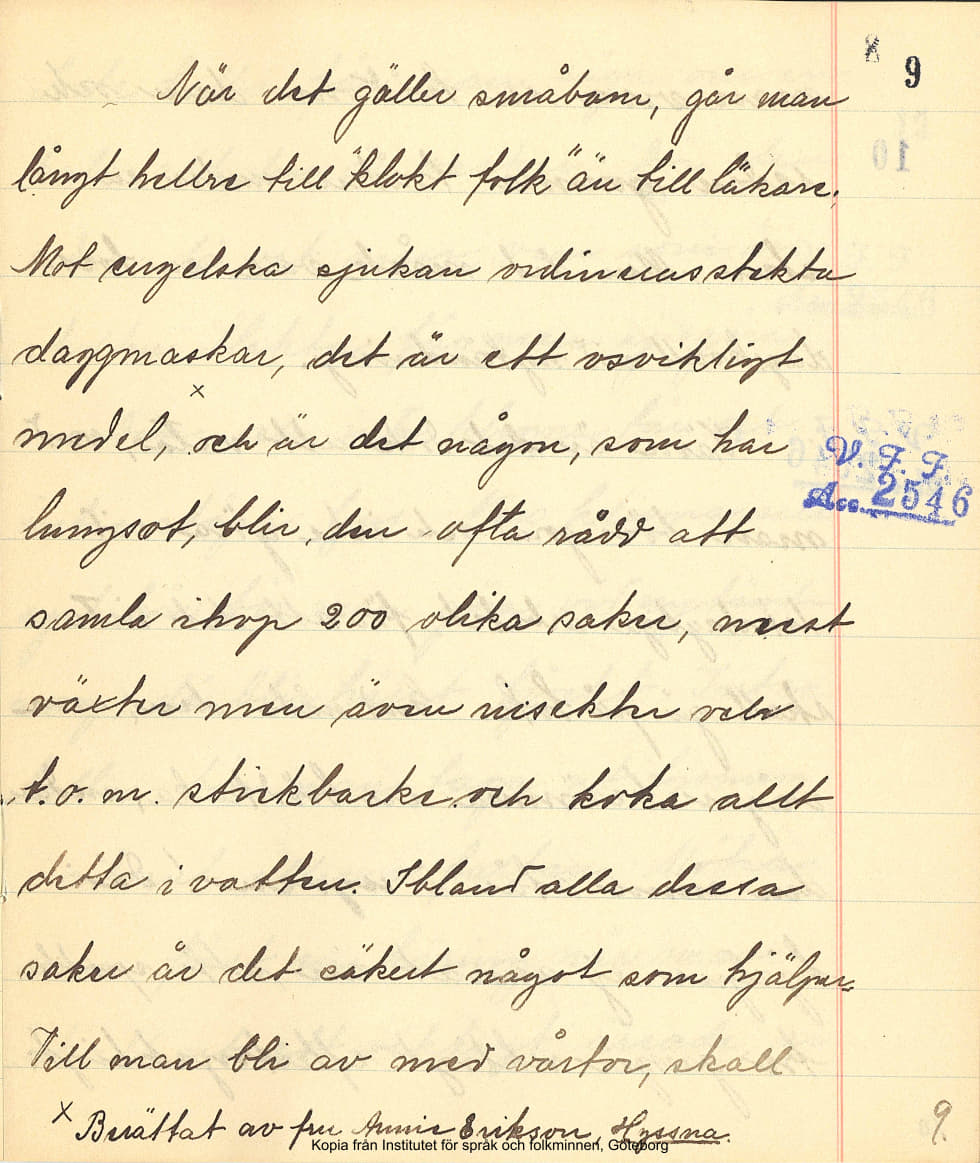 9
När det gäller småbarn, går man
långt hellre till "klokt folk" än till läkare.
Mot engelska sjukan ordineras stekta
daggmaskar, det är ett osvikligt
medel,x och är det någon, som har
V. F. F.
Acc. 2546
lungsot, blir den ofta rådd att
samla ihop 200 olika saker, mest
växter men även insekter och
t.o.m. stickbarkr och koka allt
detta i vatten. Ibland alla dessa
saker är det säkert något som hjälper.
Vill man bli av med vårtor, skall
x Berättat av fru Annie Erikson, Hyssna.
9.
Kopia från Institutet för språk och folkminnen, Göteborg